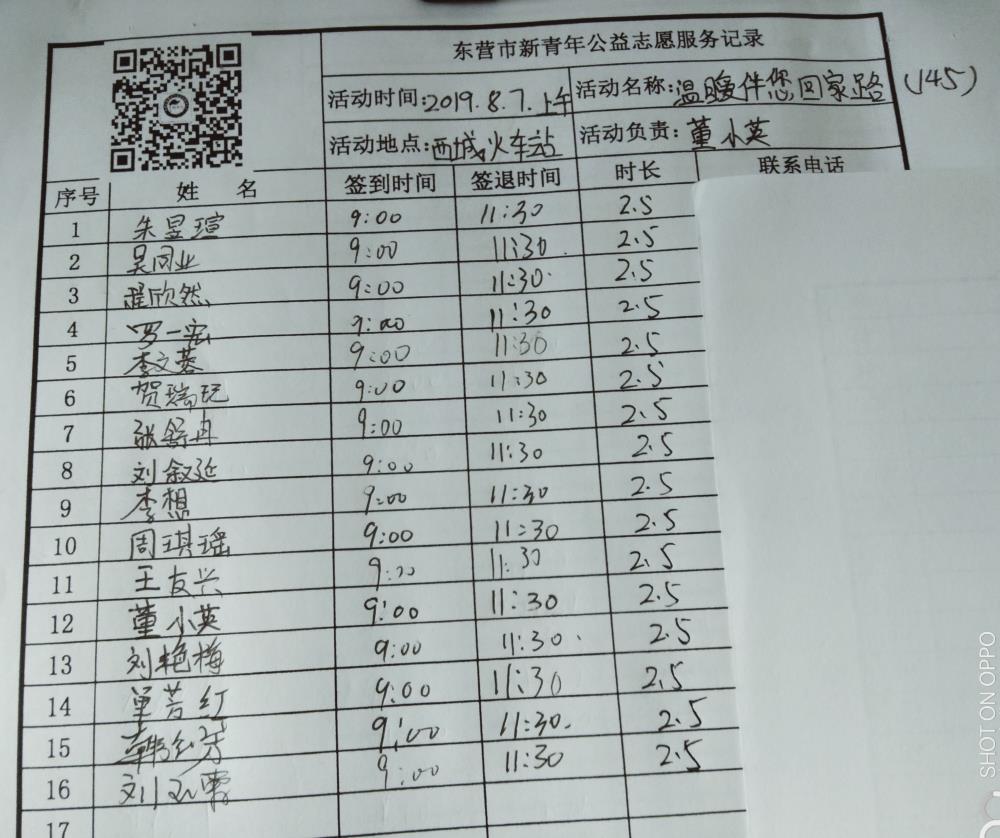 东营市新青年公益志愿服务记录
活动时间:2019.8.7.上午 活动名称:温暖伴您回家路 (145)
活动地点:西城火车站 活动负责:董小英
序号 姓 名 签到时间 签退时间 时长 联系电话
1 朱昱瑄 9:00 11:30 2.5
2 吴同业 9:00 11:30 2.5
3 程欣然 9:00 11:30 2.5
4 罗一宏 9:00 11:30 2.5
5 李文蓉 9:00 11:30 2.5
6 贺瑞玩 9:00 11:30 2.5
7 张舒丹 9:00 11:30 2.5
8 刘叙延 9:00 11:30 2.5
9 李想 9:00 11:30 2.5
10 周琪瑶 9:00 11:30 2.5
11 王友兴 9:00 11:30 2.5
12 董小英 9:00 11:30 2.5
13 刘艳梅 9:00 11:30 2.5
14 单芳红 9:00 11:30 2.5
15 9:00 11:30 2.5
16 刘玉霞 9:00 11:30 2.5
17
SHOT ON OPPO